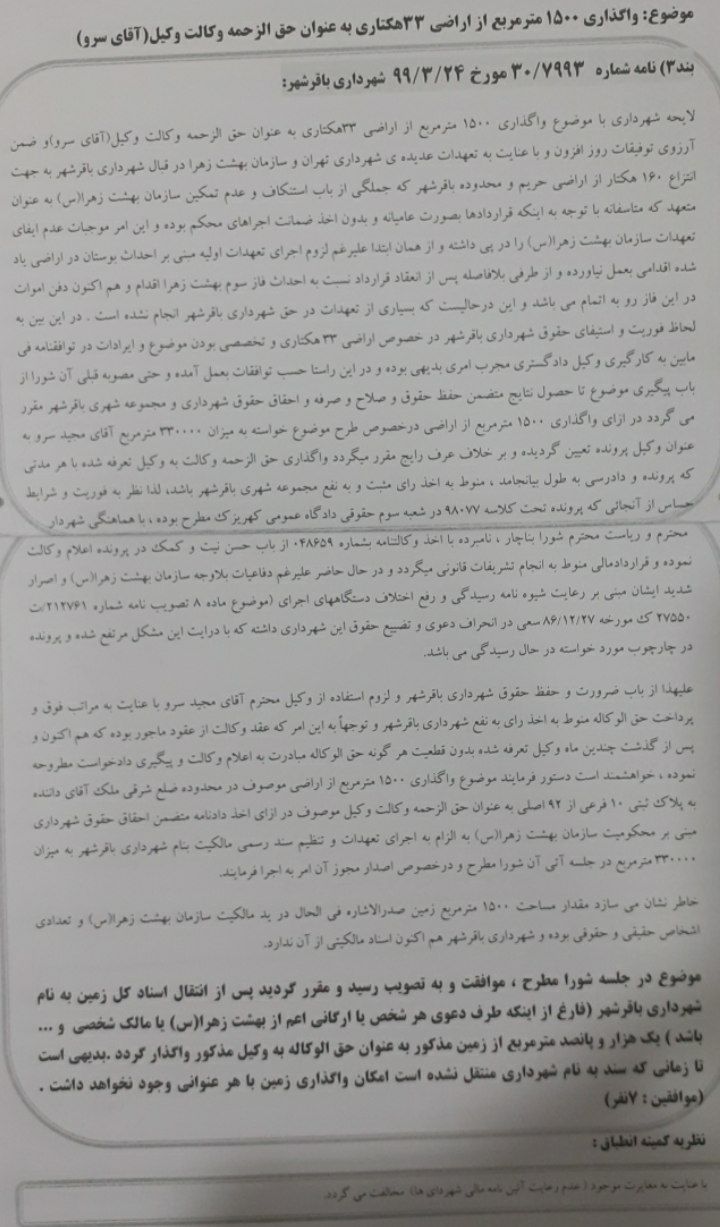 موضوع: واگذاری ۱۵۰۰ مترمربع از اراضی ۳۳هکتاری به عنوان حق الزحمه وکالت وکیل(آقای سرو)
بند۳) نامه شماره ۳۰/۷۹۹۳ مورخ ۹۹/۳/۲۴ شهرداری باقرشهر:
لایحه شهرداری با موضوع واگذاری ۱۵۰۰ مترمربع از اراضی ۳۳هکتاری به عنوان حق الزحمه وکالت وکیل(آقای سرو)و ضمن
آرزوی توفیقات روز افزون و با عنایت به تعهدات عدیده ی شهرداری تهران و سازمان بهشت زهرا در قبال شهرداری باقرشهر به جهت
انتزاع ۱۶۰ هکتار از اراضی حریم و محدوده باقرشهر که جملگی از باب استنکاف و عدم تمکین سازمان بهشت زهرا(س) به عنوان
متعهد که متاسفانه با توجه به اینکه قراردادها بصورت عامیانه و بدون اخذ ضمانت اجراهای محکم بوده و این امر موجبات عدم ایفای
تعهدات سازمان بهشت زهرا(س) را در پی داشته و از همان ابتدا علیرغم لزوم اجرای تعهدات اولیه مبنی بر احداث بوستان در اراضی یاد
شده اقدامی بعمل نیاورده و از طرفی بلافاصله پس از انعقاد قرارداد نسبت به احداث فاز سوم بهشت زهرا اقدام و هم اکنون دفن اموات
در این فاز رو به اتمام می باشد و این درحالیست که بسیاری از تعهدات در حق شهرداری باقرشهر انجام نشده است . در این بین به
لحاظ فوریت و استیفای حقوق شهرداری باقرشهر در خصوص اراضی ۳۳ هکتاری و تخصصی بودن موضوع و ایرادات در توافقنامه فی
مابین به کارگیری وکیل دادگستری مجرب امری بدیهی بوده و در این راستا حسب توافقات بعمل آمده و حتی مصوبه قبلی آن شورا از
باب پیگیری موضوع تا حصول نتایج متضمن حفظ حقوق و صلاح و صرفه و احقاق حقوق شهرداری و مجموعه شهری باقرشهر مقرر
می گردد در ازای واگذاری ۱۵۰۰ مترمربع از اراضی درخصوص طرح موضوع خواسته به میزان ۳۳۰۰۰۰ مترمربع آقای مجید سرو به
عنوان وکیل پرونده تعیین گردیده و بر خلاف عرف رایج مقرر میگردد واگذاری حق الزحمه وکالت به وکیل تعرفه شده با هر مدتی
که پرونده و دادرسی به طول بیانجامد ، منوط به اخذ رای مثبت و به نفع مجموعه شهری باقرشهر باشد، لذا نظر به فوریت و شرایط
حساس از آنجائی که پرونده تحت کلاسه ۹۸۰۷۷ در شعبه سوم حقوقی دادگاه عمومی کهریزک مطرح بوده ، با هماهنگی شهردار
محترم و ریاست محترم شورا بناچار ، نامبرده با اخذ وکالتنامه بشماره ۰۴۸۶۵۹ از باب حسن نیت و کمک در پرونده اعلام وکالت
نموده و قراردادمالی منوط به انجام تشریفات قانونی میگردد و در حال حاضر علیرغم دفاعیات بلاوجه سازمان بهشت زهرا(س) و اصرار
شدید ایشان مبنی بر رعایت شیوه نامه رسیدگی و رفع اختلاف دستگاههای اجرای (موضوع ماده ۸ تصویب نامه شماره ۲۱۲۷۶۱/ت
۲۷۵۵۰ ک مورخه ۸۶/۱۲/۲۷ سعی در انحراف دعوی و تضییع حقوق این شهرداری داشته که با درایت این مشکل مرتفع شده و پرونده
در چارچوب مورد خواسته در حال رسیدگی می باشد.
علیهذا از باب ضرورت و حفظ حقوق شهرداری باقرشهر و لزوم استفاده از وکیل محترم آقای مجید سرو با عنایت به مراتب فوق و
پرداخت حق الوکاله منوط به اخذ رای به نفع شهرداری باقرشهر و توجهاً به این امر که عقد وکالت از عقود ماجور بوده که هم اکنون و
پس از گذشت چندین ماه وکیل تعرفه شده بدون قطعیت هر گونه حق الوکاله مبادرت به اعلام وکالت و پیگیری دادخواست مطروحه
نموده ، خواهشمند است دستور فرمایند موضوع واگذاری ۱۵۰۰ مترمربع از اراضی موصوف در محدوده ضلع شرقی ملک آقای داننده
به پلاک ثبتی ۱۰ فرعی از ۹۲ اصلی به عنوان حق الزحمه وکالت وکیل موصوف در ازای اخذ دادنامه متضمن احقاق حقوق شهرداری
مبنی بر محکومیت سازمان بهشت زهرا(س) به الزام به اجرای تعهدات و تنظیم سند رسمی مالکیت بنام شهرداری باقرشهر به میزان
۳۳۰۰۰۰ مترمربع در جلسه آتی آن شورا مطرح و درخصوص اصدار مجوز آن امر به اجرا فرمایند.
خاطر نشان می سازد مقدار مساحت ۱۵۰۰ مترمربع زمین صدرالاشاره فی الحال در ید مالکیت سازمان بهشت زهرا(س) و تعدادی
اشخاص حقیقی و حقوقی بوده و شهرداری باقرشهر هم اکنون اسناد مالکیتی از آن ندارد.
موضوع در جلسه شورا مطرح ، موافقت و به تصویب رسید و مقرر گردید پس از انتقال اسناد کل زمین به نام
شهرداری باقرشهر (فارغ از اینکه طرف دعوی هر شخص یا ارگانی اعم از بهشت زهرا(س) یا مالک شخصی و ...
باشد ) یک هزار و پانصد مترمربع از زمین مذکور به عنوان حق الوکاله به وکیل مذکور واگذار گردد .بدیهی است
تا زمانی که سند به نام شهرداری منتقل نشده است امکان واگذاری زمین با هر عنوانی وجود نخواهد داشت .
(موافقین : ۷نفر)
نظریه کمیته انطباق :
با عنایت به مغایرت موجود ( عدم رعایت آئین نامه مالی شهرداری ها) مخالفت می گردد.